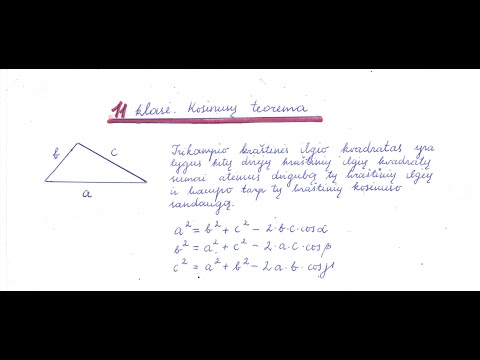 11 klasė. Kosinusų teorema
b
c
a
Trikampio kraštinės ilgio kvadratas yra
lygus kitų dviejų kraštinių ilgių kvadratų
sumai atėmus dvigubą tų kraštinių ilgių
ir kampo tarp tų kraštinių kosinuso
sandaugą.
a² = b² + c² - 2·b·c·cosα
b² = a² + c² - 2·a·c·cosβ
c² = a² + b² - 2a·b·cosγ